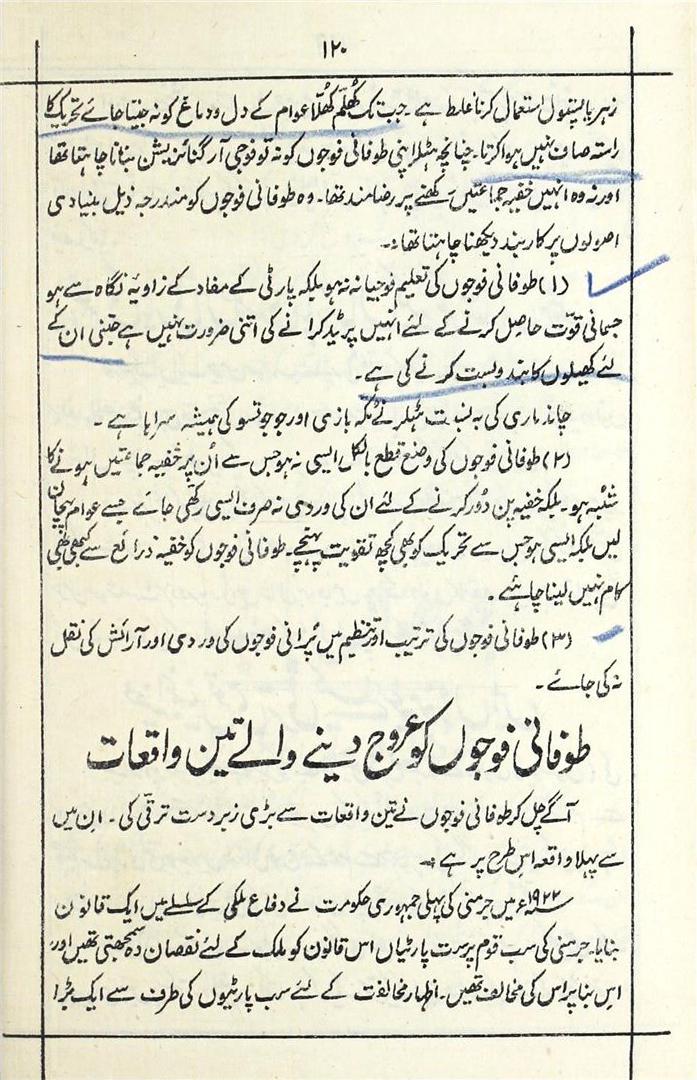 ۱۲۰
زہر یا پستول استعمال کرنا غلط ہے ۔ جب تک کھلم کھلا عوام کے دل و دماغ کو نہ جیتا جائے تحریک کا
راستہ صاف نہیں ہوا کرتا ۔ چنانچہ ہٹلر اپنی طوفانی فوجوں کو نہ تو فوجی آرگنائزیشن بنانا چاہتا تھا
اور نہ وہ انہیں خفیہ جماعتیں رکھنے پر رضامند تھا ۔ وہ طوفانی فوجوں کو مندرجہ ذیل بنیادی
اصولوں پر کاربند دیکھنا چاہتا تھا :۔
(۱) طوفانی فوجوں کی تعلیم فوجیانہ نہ ہو بلکہ پارٹی کے مفاد کے زاویۂ نگاہ سے ہو
جسمانی قوّت حاصل کرنے کے لئے انہیں پریڈ کرانے کی اتنی ضرورت نہیں ہے جتنی ان کے
لئے کھیلوں کا بندوبست کرنے کی ہے ۔
چاند ماری کی بہ نسبت ہٹلر نے مُکّہ بازی اور جوجوتسو کی ہمیشہ سراہا ہے ۔
(۲) طوفانی فوجوں کی وضع قطع بالکل ایسی نہ ہو جس سے اُن پر خفیہ جماعتیں ہونے کا
شُبہ ہو ۔ بلکہ خفیہ پن دُور کرنے کے لئے ان کی وردی نہ صرف ایسی رکھی جائے جسے عوام پہچان
لیں بلکہ ایسی ہو جس سے تحریک کو بھی کچھ تقویت پہنچے ۔ طوفانی فوجوں کو خفیہ ذرائع سے کبھی بھی
کام نہیں لینا چاہئے ۔
(۳) طوفانی فوجوں کی ترتیب اور تنظیم میں پُرانی فوجوں کی وردی اور آرائش کی نقل
نہ کی جائے ۔
طوفانی فوجوں کو عروج دینے والے تین واقعات
آگے چل کر طوفانی فوجوں نے تین واقعات سے بڑی زبردست ترقّی کی ۔ ان میں
سے پہلا واقعہ اس طرح پر ہے :۔
۱۹۲۲ء میں جرمنی کی پہلی جمہوری حکومت نے دفاع ملکی کے سلسلے میں ایک قانون
بنایا ۔ جرمنی کی سب قوم پرست پارٹیاں اس قانون کو ملک کے لئے نقصان دہ سمجھتی تھیں اور
اس بنا پر اس کی مخالف تھیں ۔ اظہار مخالفت کے لئے سب پارٹیوں کی طرف سے ایک بڑا